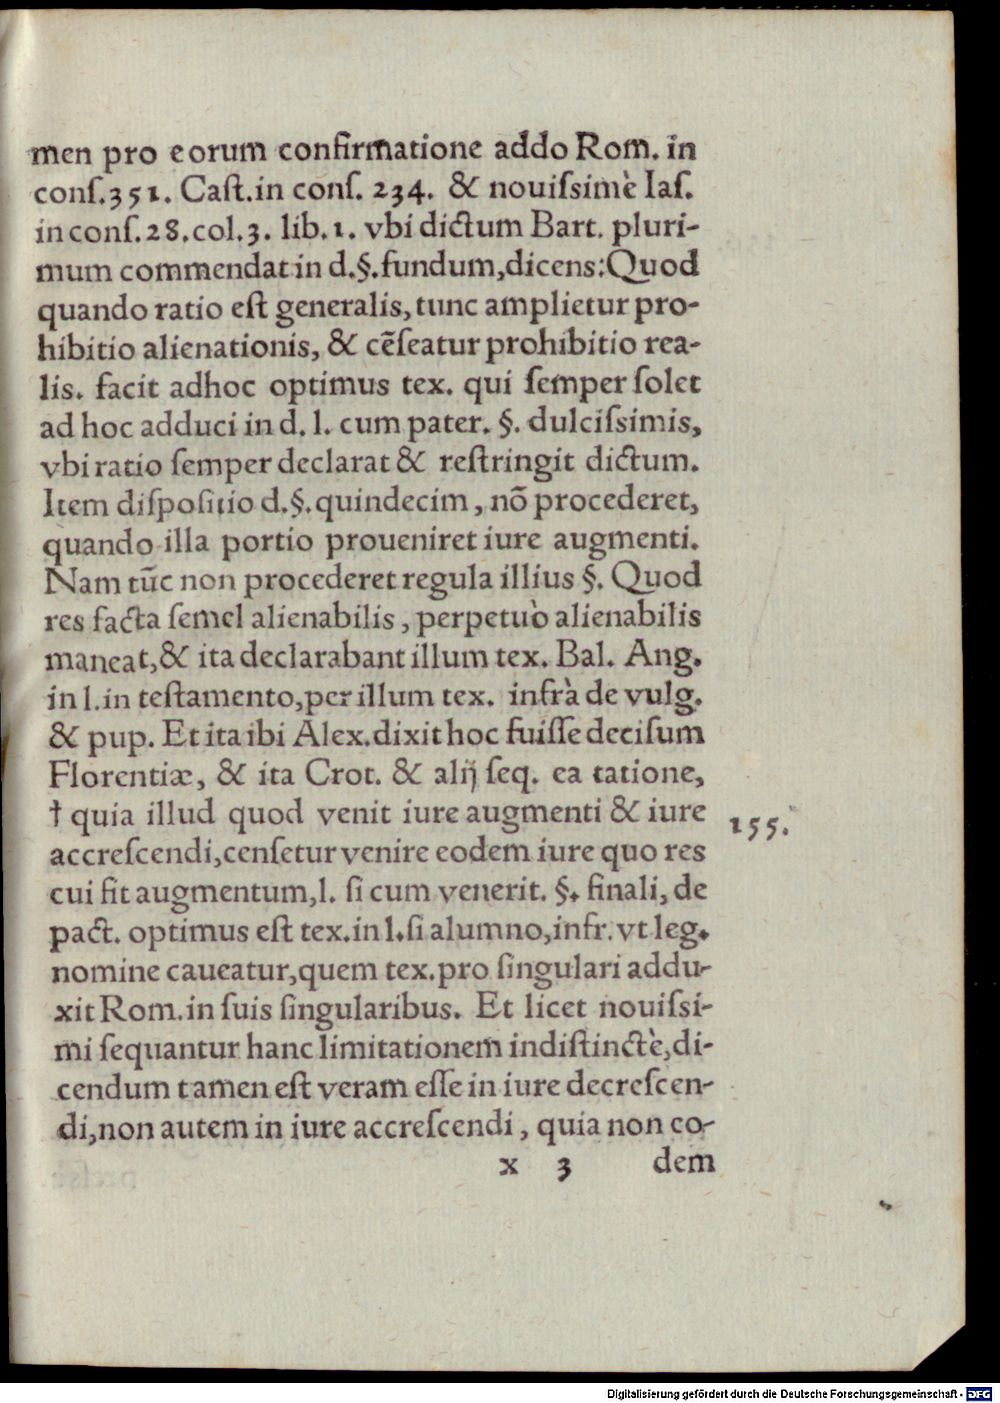 men pro eorum confirmatione addo Rom. in
conſ.351. Caſt.in conſ. 234. & nouiſsimè Iaſ.
in conſ.28.col.3. lib.1. vbi dictum Bart. pluri-
mum commendat in d.§.fundum,dicens:Quod
quando ratio eſt generalis, tunc amplietur pro-
hibitio alienationis, & cēſeatur prohibitio rea-
lis. facit adhoc optimus tex. qui ſemper ſolet
ad hoc adduci in d. l. cum pater. §. dulciſsimis,
vbi ratio ſemper declarat & reſtringit dictum.
Item diſpoſitio d.§.quindecim, nō procederet,
quando illa portio proueniret iure augmenti.
Nam tūc non procederet regula illius §. Quod
res facta ſemel alienabilis, perpetuò alienabilis
maneat,& ita declarabant illum tex. Bal. Ang.
in l.in teſtamento,per illum tex. infrà de vulg.
& pup. Et ita ibi Alex.dixit hoc fuiſſe deciſum
Florentiæ, & ita Crot. & alij ſeq. ea tatione,
† quia illud quod venit iure augmenti & iure 155.
accreſcendi,cenſetur venire eodem iure quo res
cui fit augmentum,l. ſi cum venerit. §. finali, de
pact. optimus eſt tex.in l.ſi alumno,infr. vt leg.
nomine caueatur,quem tex.pro ſingulari addu-
xit Rom.in ſuis ſingularibus. Et licet nouiſsi-
mi ſequantur hanc limitationem indiſtinctè,di-
cendum tamen eſt veram eſſe in iure decreſcen-
di,non autem in iure accreſcendi, quia non eo-
x 3 dem
Digitalisierung gefördert durch die Deutsche Forschungsgemeinschaft - DFG